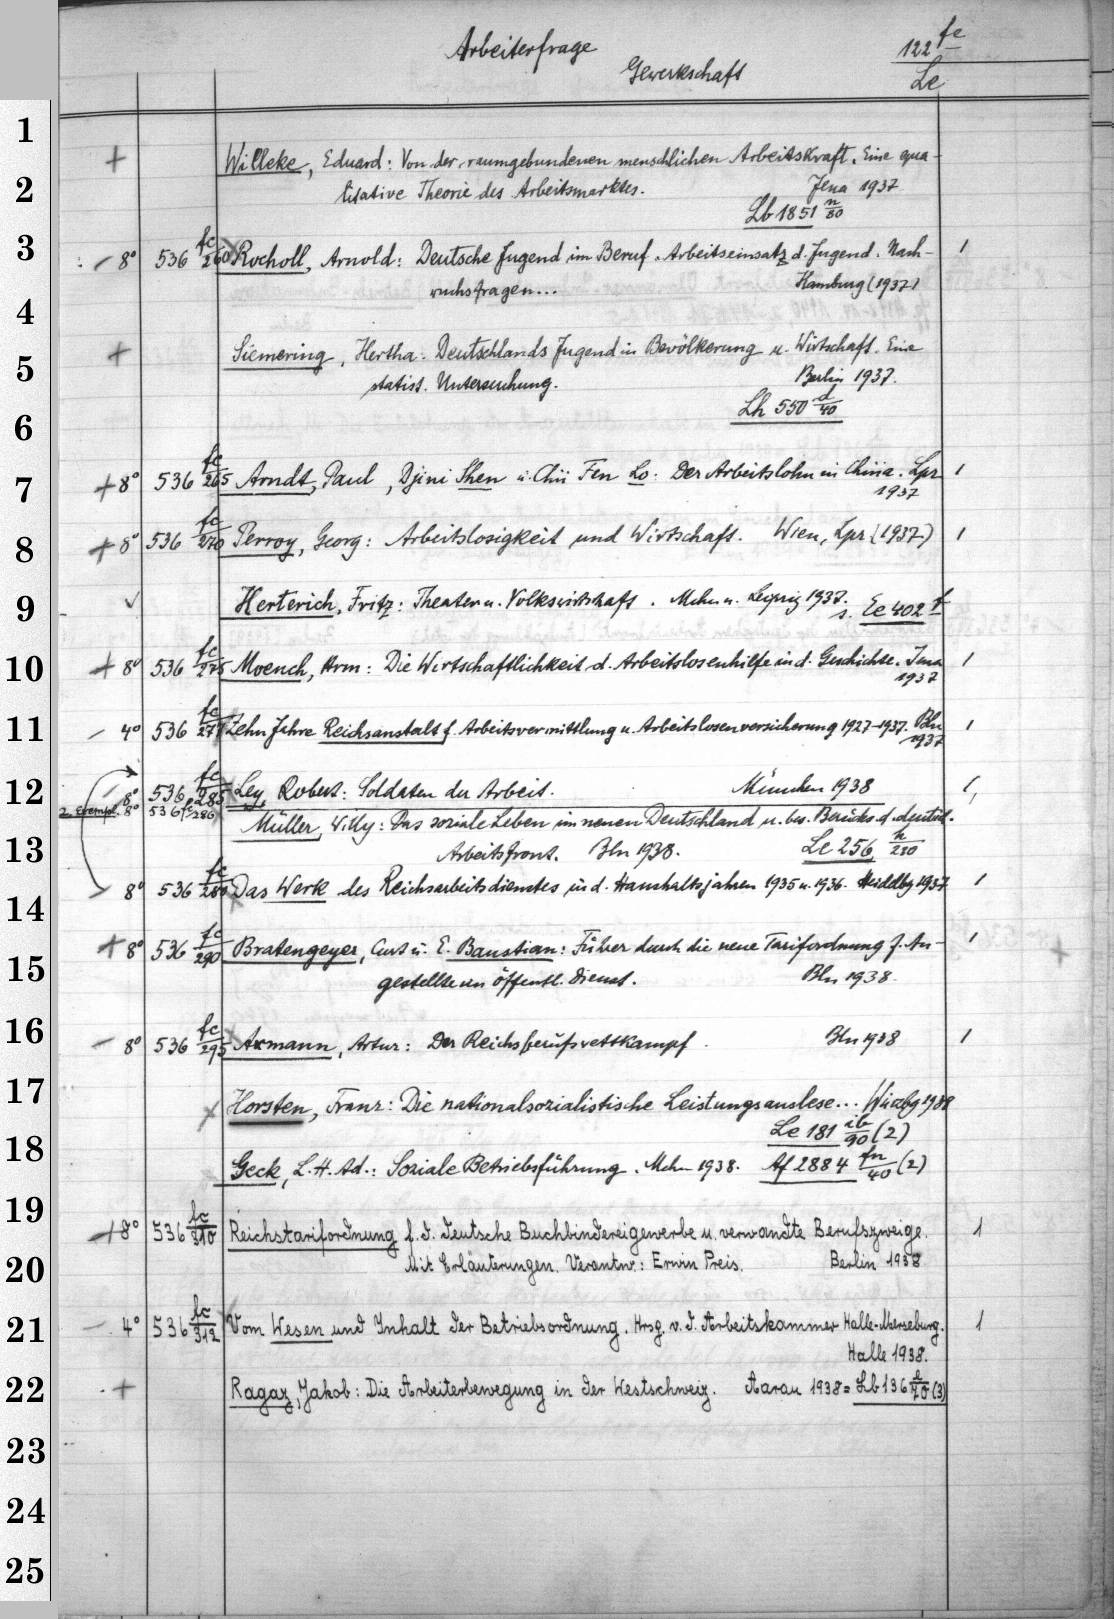 Arbeiterfrage
Gewerkschaft
122 fc
Le
1
+ Willeke, Eduard: Von der raumgebundenen menschlichen Arbeitskraft. Eine qua-
2
litative Theorie des Arbeitsmarktes. Jena 1937
Lb 1851 n/80
3
8° 536 fc/260 Rocholl, Arnold: Deutsche Jugend im Beruf. Arbeitseinsatz d. Jugend. Nach- 1
wuchsfragen... Hamburg (1937)
4
+ Siemering, Hertha: Deutschlands Jugend in Bevölkerung u. Wirtschaft. Eine
5
statist. Untersuchung. Berlin 1937.
Lh 550 d/40
6
+ 8° 536 fc/265 Arndt, Paul, Djini Shen u. Chü Fen Lo: Der Arbeitslohn in China. Lpz 1
7
1937
+ 8° 536 fc/270 Perroy, Georg: Arbeitslosigkeit und Wirtschaft. Wien, Lpz (1937) 1
8
Herterich, Fritz: Theater u. Volkswirtschaft. Mchn u. Leipzig 1937.
9
s. Ec 402 f
+ 8° 536 fc/275 Moench, Hrm: Die Wirtschaftlichkeit d. Arbeitslosenhilfe in d. Geschichte. Jena 1
10
1937
4° 536 fc/277 Zehn Jahre Reichsanstalt f. Arbeitsvermittlung u. Arbeitslosenversicherung 1927-1937. Bln 1
11
1937
8° 536 fc/285 Ley, Robert: Soldaten der Arbeit. München 1938 1,
12
2. Exempl. 8° 536 fc/286
Müller, Willy: Das soziale Leben im neuen Deutschland u. bes. Berücks. d. deutsch.
13
Arbeitsfront. Bln 1938. Le 256 h/250
8° 536 fc/280 Das Werk des Reichsarbeitsdienstes in d. Haushaltsjahren 1935 u. 1936. Heidelbg 1937 1
14
+ 8° 536 fc/290 Bratengeyer, Curt u. E. Baustian: Führer durch die neue Tarifordnung f. An- 1
15
gestellte im öffentl. Dienst. Bln 1938.
16
8° 536 fc/295 Axmann, Artur: Der Reichsberufswettkampf. Bln 1938 1
17
Horsten, Franz: Die nationalsozialistische Leistungsauslese... Würzbg 1938
Le 181 ib/90 (2)
18
Geck, L. H. Ad.: Soziale Betriebsführung. Mchn 1938. Af 2884 fn/40 (2)
19
8° 536 fc/310 Reichstarifordnung f. d. deutsche Buchbindereigewerbe u. verwandte Berufszweige. 1
20
Mit Erläuterungen. Verantw.: Erwin Preis. Berlin 1938
21
4° 536 fc/312 Vom Wesen und Inhalt der Betriebsordnung. Hrsg. v. d. Arbeitskammer Halle-Merseburg. 1
Halle 1938.
22
+ Ragaz, Jakob: Die Arbeiterbewegung in der Westschweiz. Aarau 1938 = Lb 136 /70 (3)
23
24
25